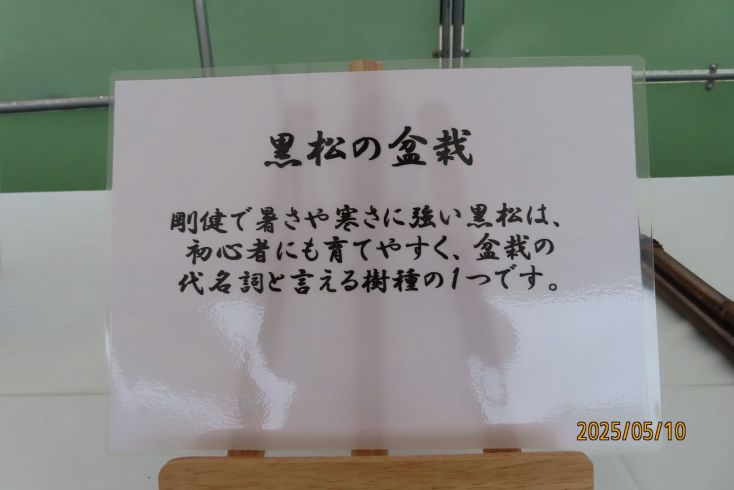 黒松の盆栽
剛健で暑さや寒さに強い黒松は、
初心者にも育てやすく、盆栽の
代名詞と言える樹種の1つです。
2025/05/10